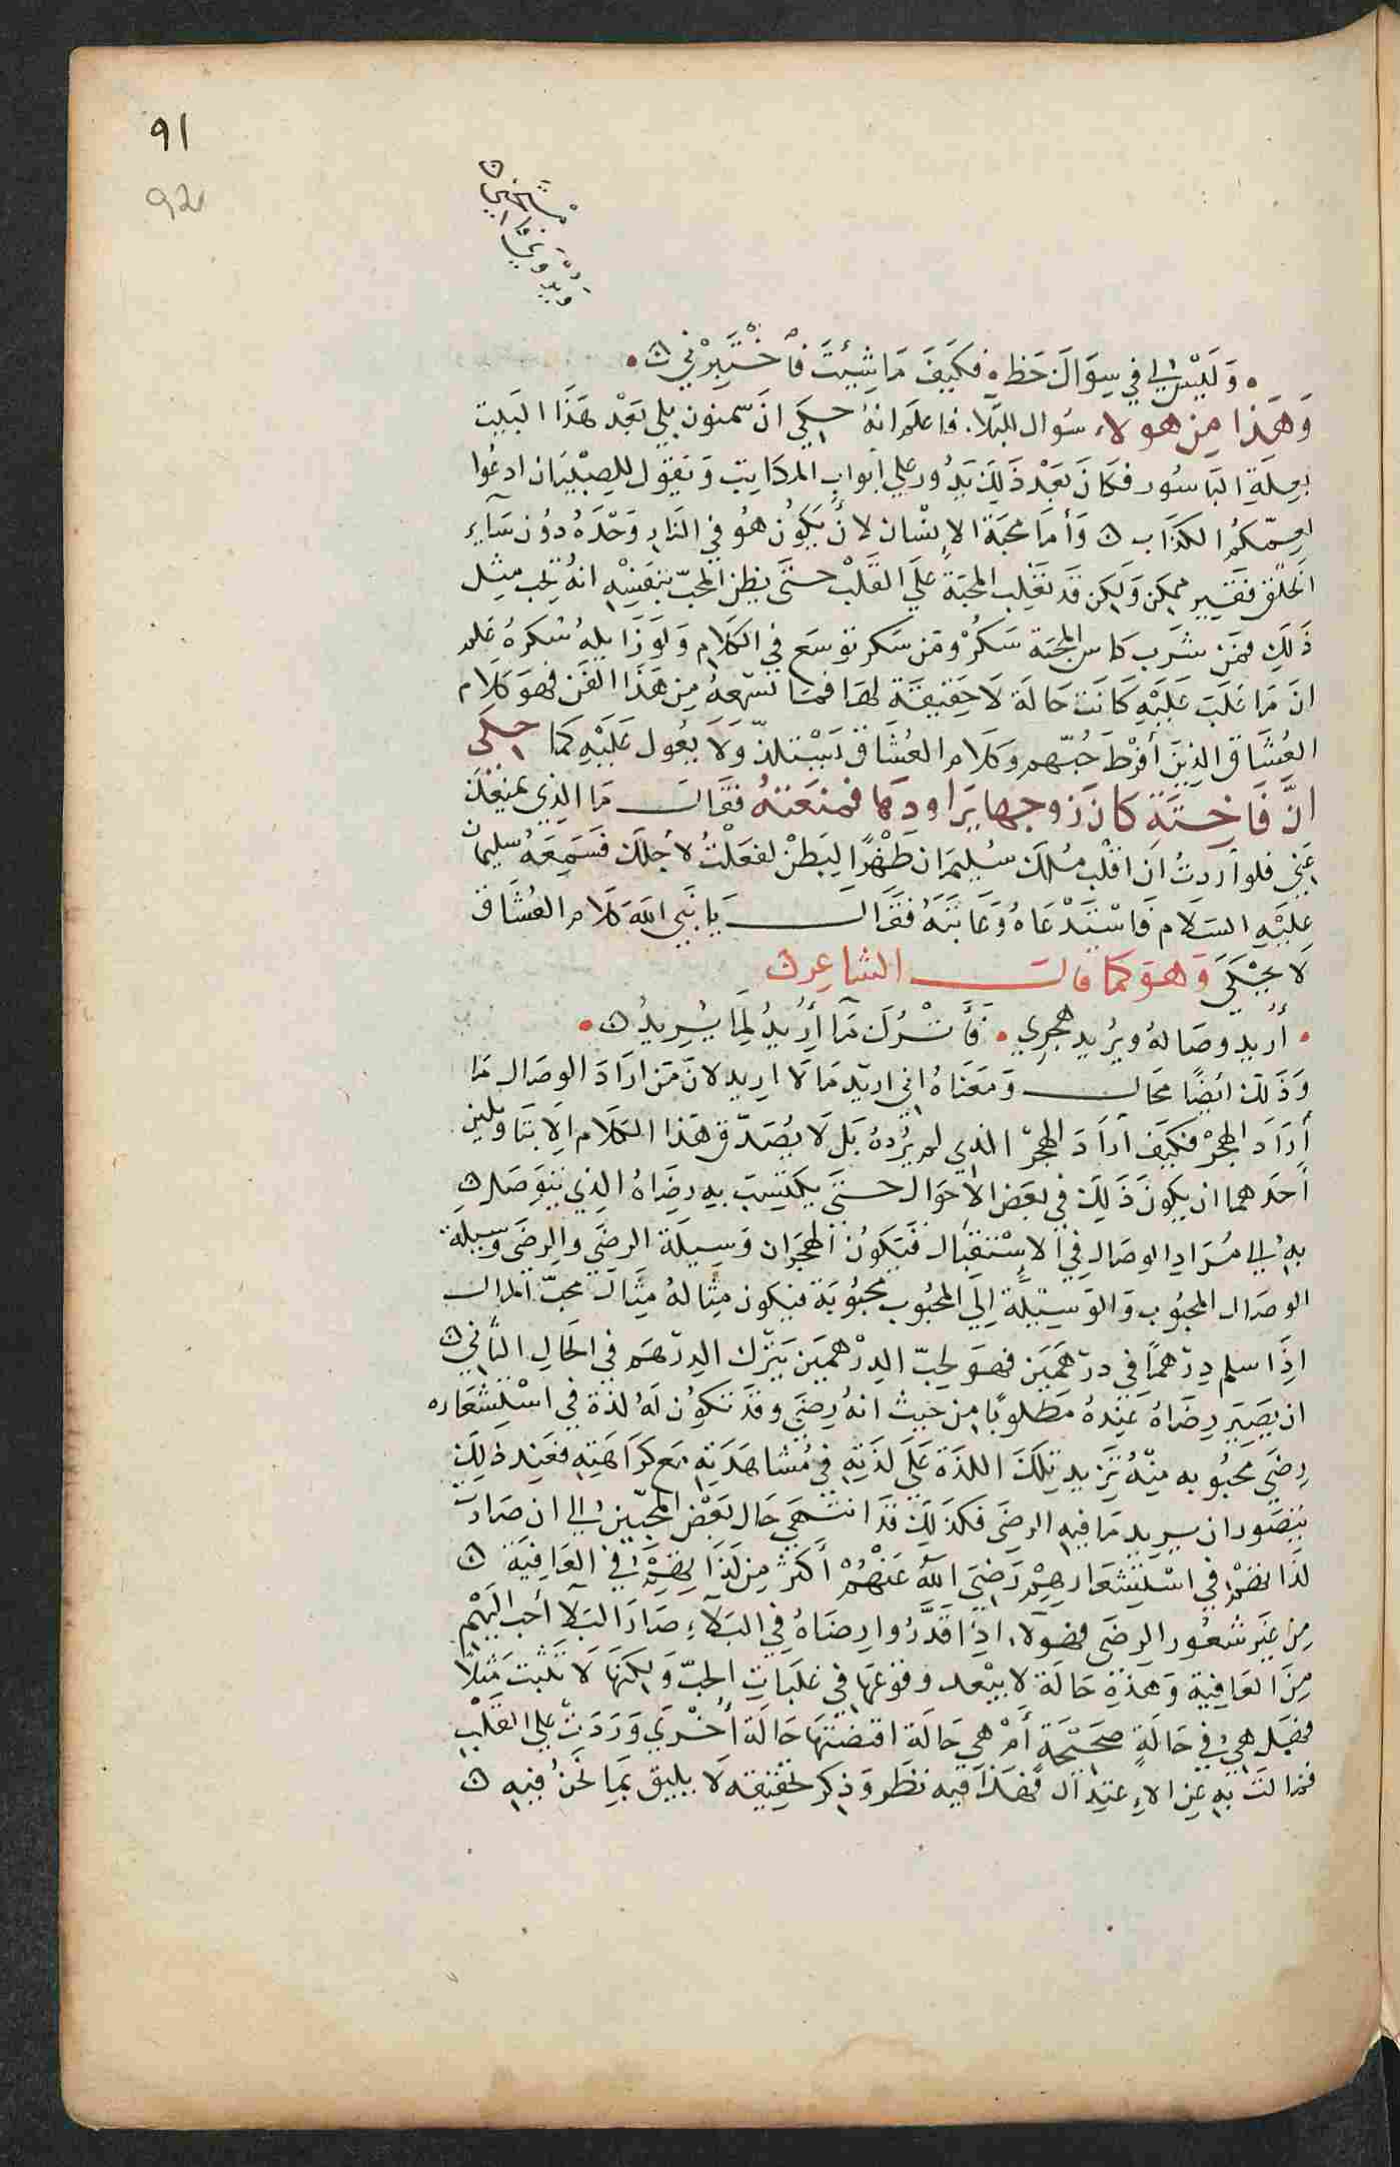 91
92
وَلَيْسَ لِي فِي سِوَاكَ حَظ فَكَيَفَ مَا شِيْتَ فَاخْتَبِرْنِي
وَهَذَا مِن هولاء سُوال للبَلاء فاعلم انهُ حكي انَ سمنون بلي بَعْد هَذَا البَيت
بعِلةِ البَاسُور فكَانَ بَعْد ذَلِكَ يَدُور علي ابواب المكاتب وَيَقول للصِبْيَان ادعُوا
لعمّكم الكذَاب وَأمَا محبَة الإنسْان لانْ يَكوُن هُو في النَار وَحْدَهُ دوُن سَاير
الخلق فغَير ممكِن وَلَكِن قَد تغَلِب المحبَة عَلَي القَلْب حتَّى يظن المحبّ بنَفسْهِ انهُ يحِب مثِل
ذَلِكَ فمَن شَرَب كاس المحبَة سَكرْ ومَن سَكر توَسَع في الكَلَام وَلوَ زَايلهُ سُكرهُ عَلم
انَ مَا غلَبَ عَلَيْهِ كَانَت حَالة لَا حَقيقَة لهَا فمَا تسْمَعهُ مِن هَذَا الفَن فهوَ كَلَام
العُشَّاق الذِينَ أفرْطَ حُبّهم وكَلَام العُشَّاق يَسْتلذّ وَلَا يعُول عَلَيْهِ كمَا حكَى
انَّ فَاخِتَة كَانَ زوجها يَراودهَا فمنعَتهُ فقَالَ مَا الذِي يمنعْكَ
عَنِي فلو أردتُ ان اقْلب مُلكَ سُليمَان ظَهْرًا لِبَطْن لفعَلْتُ لأجْلكَ فسَمِعَهُ سليمان
عَليْهِ السَلَام فَاسْتَدْعَاهُ وَعَاتبَهُ فقَالَ يَا نَبِي الله كَلَام العُشَّاق
لَا يحْكَى وَهوَ كمَا قالَ الشاعِر
أُرُيد وصَالهُ ويُريد هجرِي فَأَتْرُك مَا أُرِيدُ لِمَا يُرِيدُ
وَذَلكَ ايْضًا محَال وَمَعَناهُ اني اريد مَا لَا اريد لانَ مَن ارَادَ الوصَال مَا
أرَادَ الهجرْ فكيَف أرَادَ الهجرْ الذي لم يُردهُ بَل لَا يُصَدّق هَذا الكَلَام إلا بتَاويلين
أحَدهما ان يكونَ ذَلِكَ في بعَض الأحوَال حتَّى يكتسِبَ به رِضَاهُ الذِي يتوَصَل
بهِ الي مُرَادِ الوصَال فِي الاسْتقبَال فيَكوُن الهجرَان وَسِيلَة الرضَي والرِضَى وسيلة
الوصَال المحبُوب وَالوَسِيلة إلي المحبُوب محبُوبَة فيكون مثِالهُ مِثَالَ محبّ المال
اذَا اسلم درهمًا في درهَمَين فهوَ يحِبّ الدِرْهمَين يَترك الدِرْهَم في الحَال الثَاني
ان يَصِيَر رِضَاهُ عِندهُ مَطلوبًا مِن حَيث انهُ رِضَي وقَد تكوُن لَهُ لذة في اسْتِشعَاره
رِضَي محبُوبه مِنهُ تزيد تِلكَ اللذَة عَلَى لذتِهِ في مُشاهَدَتِهِ مَع كرَاهَتِهِ فعَند ذلِكَ
يُتصَور ان يريد مَا فيهِ الرضَى فكذَلكَ قَد انتهَي حَال بعَض المحبّينْ الي ان صَارَت
لَذَاتهمْ في اسْتِشعَارهِمْ رَضِيَ اللهُ عَنْهُمْ أكثرَ مِن لَذَاتِهِمْ فِي العَافِيَة
مِن غَير شُعُور الرضَى فهوَلَاء اذَا قَدَّرُوا رِضَاهُ فِي البَلَآءِ صَارَ البَلَا أحب اليَهْم
مِنَ العَافِية وَهذِهِ حَالَة لا يبْعد وقوعهَا في غلبَاتِ الحبّ وَلكنَهَا لَا تَثبتَ مثِلًا
فهَل هِي في حَالَةٍ صَحِيْحَةٍ أَمْ هِي حَالَة اقتضتها حَالَة أخْرَي وَرَدَتْ علي القلْبِ
فمَالتَ بهِ عِن الاِعتدَال فهَذا فيه نظر وَذِكر تحَقيقه لَا يليق بمَا نَحَنُ فيهِ